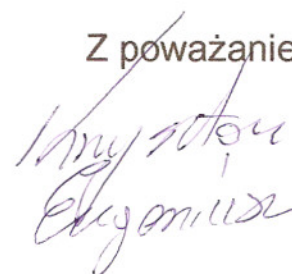 Z poważanie
Krzysztof
Eugeniusz